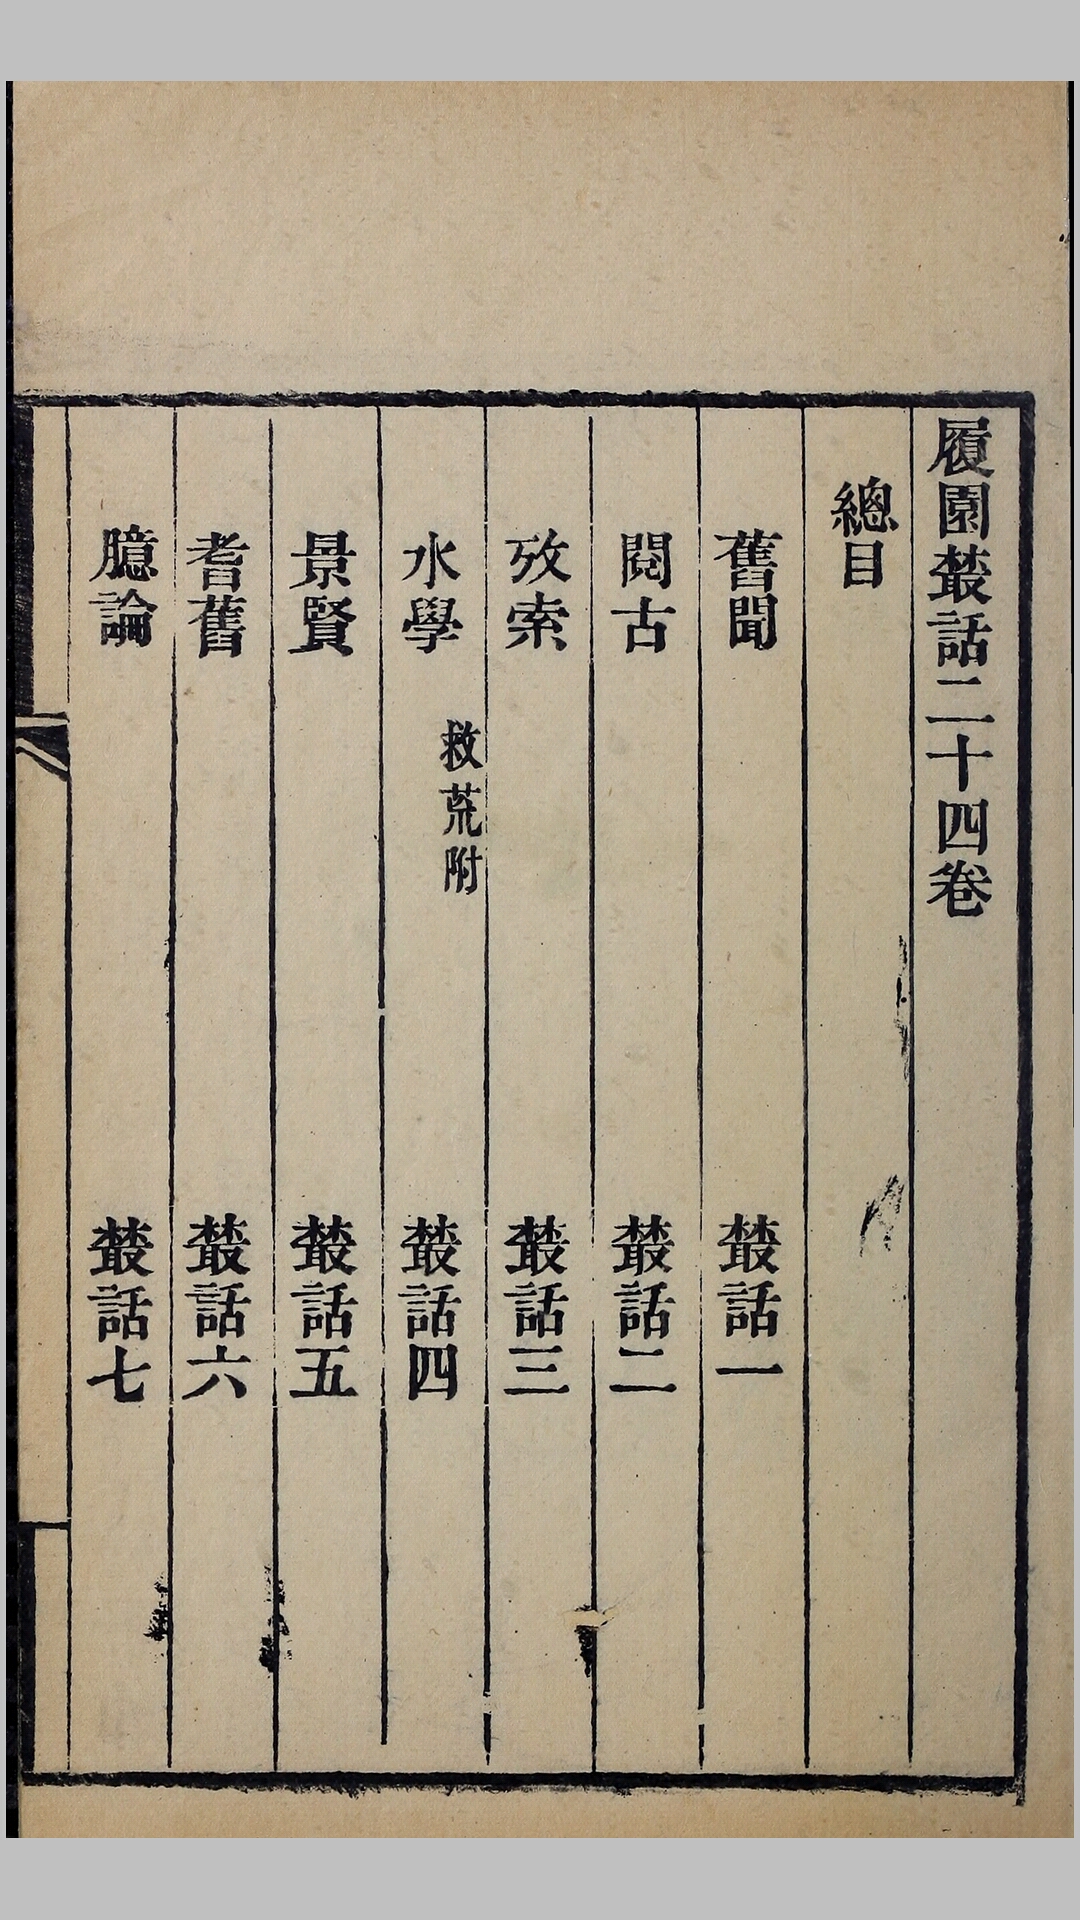 履園叢話二十四卷
總目
舊聞 叢話一
閱古 叢話二
攷索 叢話三
水學 救荒附 叢話四
景賢 叢話五
耆舊 叢話六
臆論 叢話七